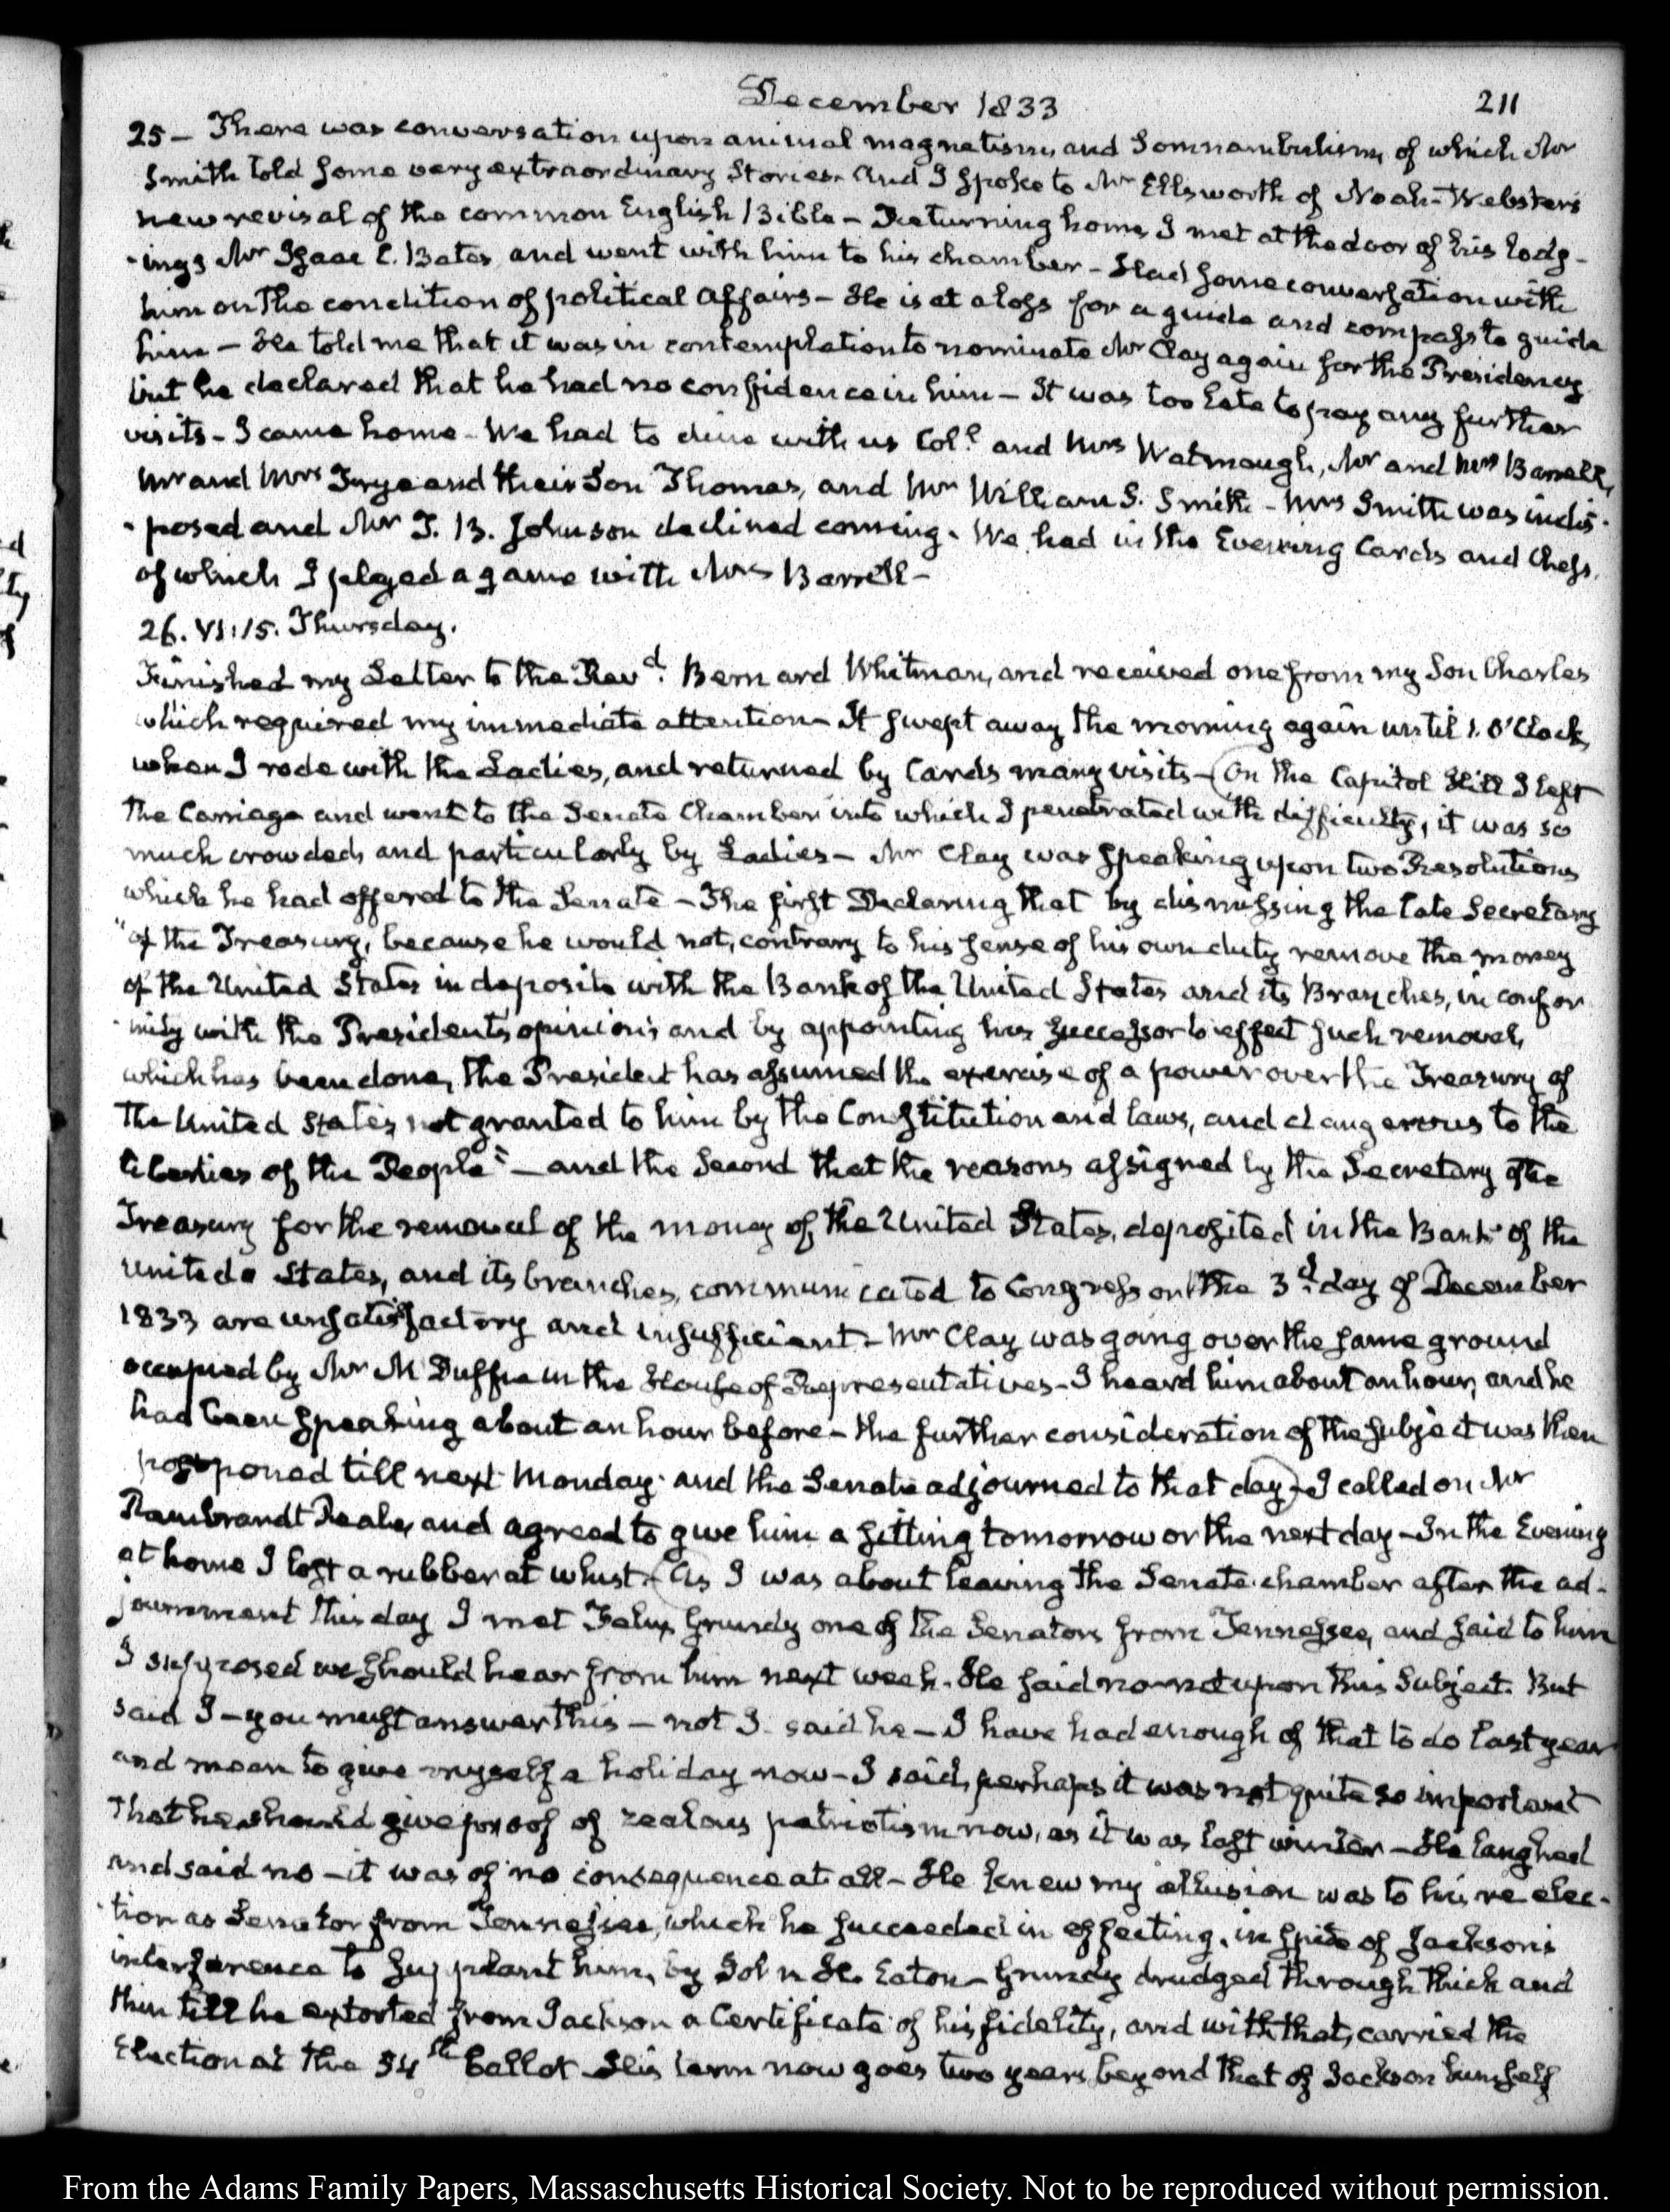 December 1833
211
25 – There was conversation upon animal magnetism, and Somnambulism, of which Mr
Smith told some very extraordinary Stories. And I spoke to Mr Ellsworth of Noah Webster's
new revisal of the common English Bible – Returning home, I met at the door of his lodg-
-ings Mr Isaac C. Bates, and went with him to his chamber – Had some conversation with
him on the condition of political Affairs – He is at a loss for a guide and compass to guide
him – He told me that it was in contemplation to nominate Mr Clay again for the Presidency
but he declared that he had no confidence in him – It was too late to pay any further
visits – I came home – We had to dine with us Coll. and Mrs Watmough, Mr and Mrs Barrell,
Mr and Mrs Frye and their Son Thomas, and Mr William S. Smith – Mrs Smith was indis-
-posed and Mr T. B. Johnson declined coming. We had in the Evening Cards and Chess,
of which I played a game with Mrs Barrell –
26. VI:15. Thursday.
Finished my Letter to the Revd. Bernard Whitman, and received one from my Son Charles
which required my immediate attention – It swept away the morning again until 1. O'Clock,
when I rode with the Ladies, and returned by Cards many visits – (On the Capitol Hill I left
the Carriage and went to the Senate Chamber into which I penetrated with difficulty, it was so
much crowded, and particularly by Ladies – Mr Clay was speaking upon two Resolutions
which he had offered to the Senate – The first Declaring that by dismissing the late Secretary
"of the Treasury, because he would not, contrary to his sense of his own duty remove the money
of the United States in deposite with the Bank of the United States and its Branches, in confor-
-mity with the President's opinion; and by appointing his successor to effect such removal,
which has been done, the President has assumed the exercise of a power over the Treasury of
the United States, not granted to him by the Constitution and laws, and dangerous to the
liberties of the People" – and the Second that the reasons assigned by the Secretary of the
Treasury for the removal of the money of the United States, deposited in the Bank of the
United States, and its branches, communicated to Congress on the 3d. day of December
1833 are unsatisfactory and insufficient – Mr Clay was going over the same ground
occupied by Mr McDuffie in the House of Representatives – I heard him about an hour, and he
had been speaking about an hour before – the further consideration of the subject was then
postponed till next Monday and the Senate adjourned to that day) – I called on Mr
Rembrandt Peale, and agreed to give him a sitting tomorrow or the next day – In the Evening
at home I lost a rubber at whist – (As I was about leaving the Senate chamber after the ad-
journment this day I met Felix Grundy one of the Senators from Tennessee, and said to him
I supposed we should hear from him next week. He said no – not upon this Subject. But
said I – you must answer this – not I said he – I have had enough of that to do last year
and mean to give myself a holiday now – I said, perhaps it was not quite so important
that he should give proof of zealous patriotism now, as it was last winter – He laughed
and said no – it was of no consequence at all – He knew my allusion was to his re elec-
-tion as Senator from Tennessee, which he succeeded in effecting, in spite of Jackson's
interference to supplant him, by John H. Eaton – Grundy drudged through thick and
thin till he extorted from Jackson a Certificate of his fidelity, and with that, carried the
Election at the 54th ballot – His term now goes two years beyond that of Jackson himself
From the Adams Family Papers, Massaschusetts Historical Society. Not to be reproduced without permission.